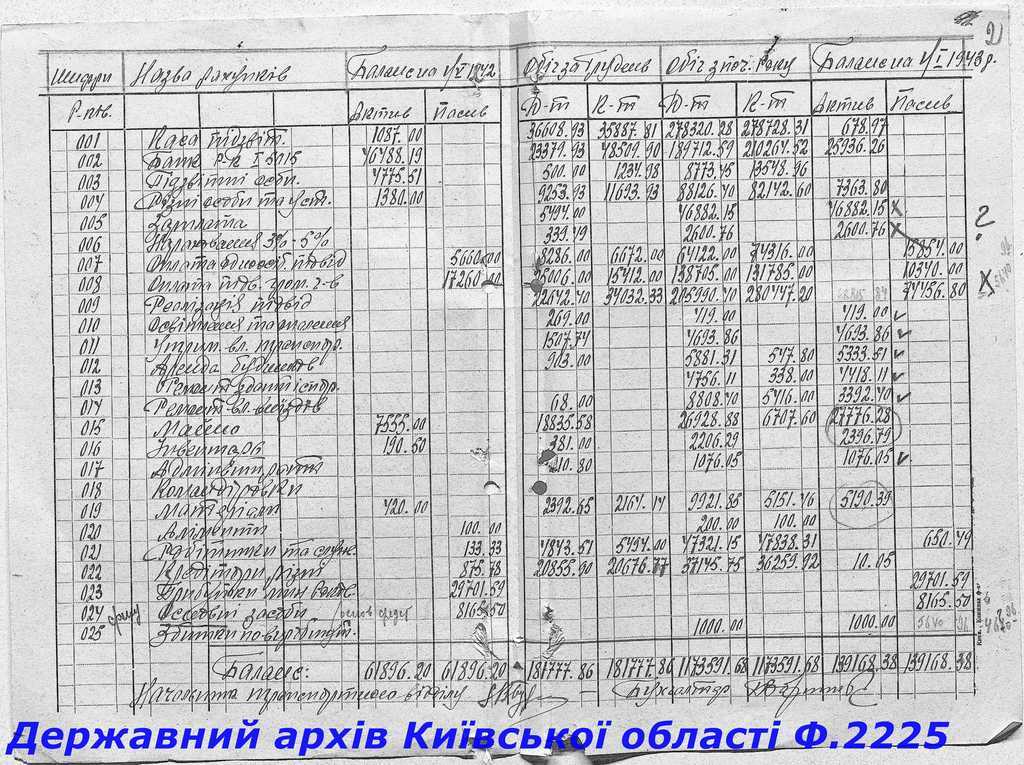 2
Шифри Назва рахунків Баланс на 1/V 1942 Обіг за Грудень Обіг з поч. Року Баланс на 1/I 1943 р.
Р-ків. Актив Пасив Д-т К-т Д-т К-т Актив Пасив
001 Каса підзвіт. 1087.00 36608.93 35887.81 278320.28 278728.31 678.97
002 Банк Р-к 46488.19 23379.93 48509.90 189712.59 210264.52 25936.26
003 Підзвітні особи. 4775.51 500.00 1234.98 8773.45 13548.96
004 Різні особи та уст. 1380.00 9253.93 11693.93 88126.40 82142.60 7363.80
005 Зарплата 5494.00 46882.15 46882.15 х
006 Нарахування 3% - 5% 339.49 2600.76 2600.76 х ?
007 Оплата підвід 5660.00 8286.00 6672.00 64122.00 74316.00 15854.00
008 Оплата підв. 17260.00 15412.00 138705.00 131785.00 10340.00
009 Реалізація підвід 22642.40 34032.33 205990.40 280447.20 74456.80 х
010 Освітлення та опалення 269.00 419.00 419.00
011 Утрим. вл. транспор. 1507.74 4693.86 4693.86
012 Аренда будинків 903.00 5881.31 547.80 5333.51
013 Ремонт 4756.11 338.00 4418.11
014 Ремонт вл. 68.00 8808.40 5416.00 3392.40
015 Майно 7555.00 18835.58 26928.88 6707.60 27776.28
016 Інвентарь 190.50 381.00 2206.29 2396.79
017 Адміните 10.80 1076.05 1076.05
018 Командіровки
019 Матеріали 420.00 2392.65 2164.14 9921.85 5151.46 5190.39
020 Аліменти 100.00 200.00 100.00
021 Робітники та служ. 133.33 4843.51 5494.00 47321.15 47838.31 650.49
022 Кредітори різні 875.78 20855.90 20676.77 37145.75 36259.92 10.05
023 29701.59 29701.59
024 Основні засоби 8165.50 8165.50
025 Збитки 1000.00 1000.00
Баланс: 61896.20 61896.20 181777.86 181777.86 1173591.68 1173591.68 139168.38 139168.38
Начальник транспортного відділу Бухгалтер
Державний архів Київської області Ф.2225